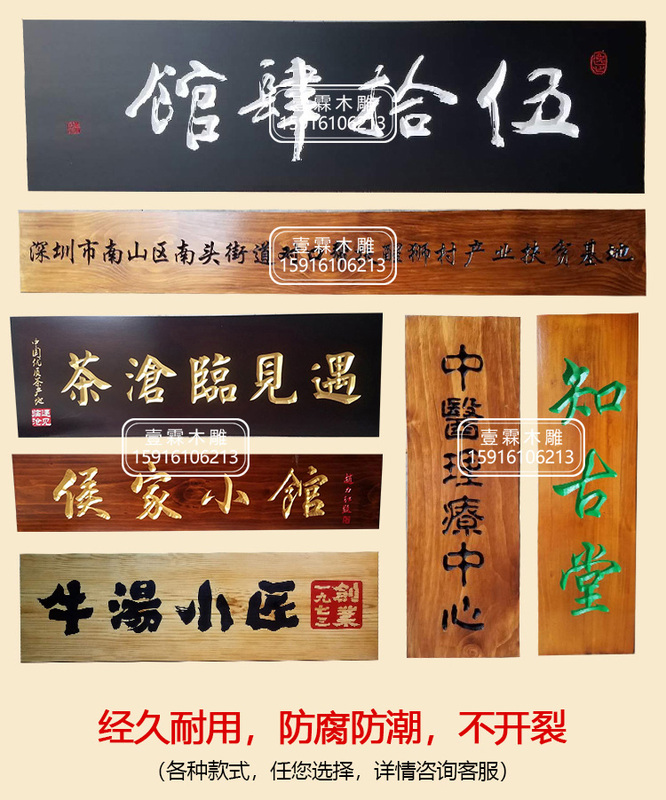 伍拾肆館
壹霖木雕
15916106213
深圳市南山区南头街道对口醒狮村产业扶贫基地
壹霖木雕
15916106213
遇見臨滄茶
中国优质茶产地
遇见临沧
壹霖木雕
15916106213
侯家小館
牛湯小匠
創業
一九七三
中醫理療中心
知古堂
壹霖木雕
15916106213
经久耐用，防腐防潮，不开裂
（各种款式，任您选择，详情咨询客服）